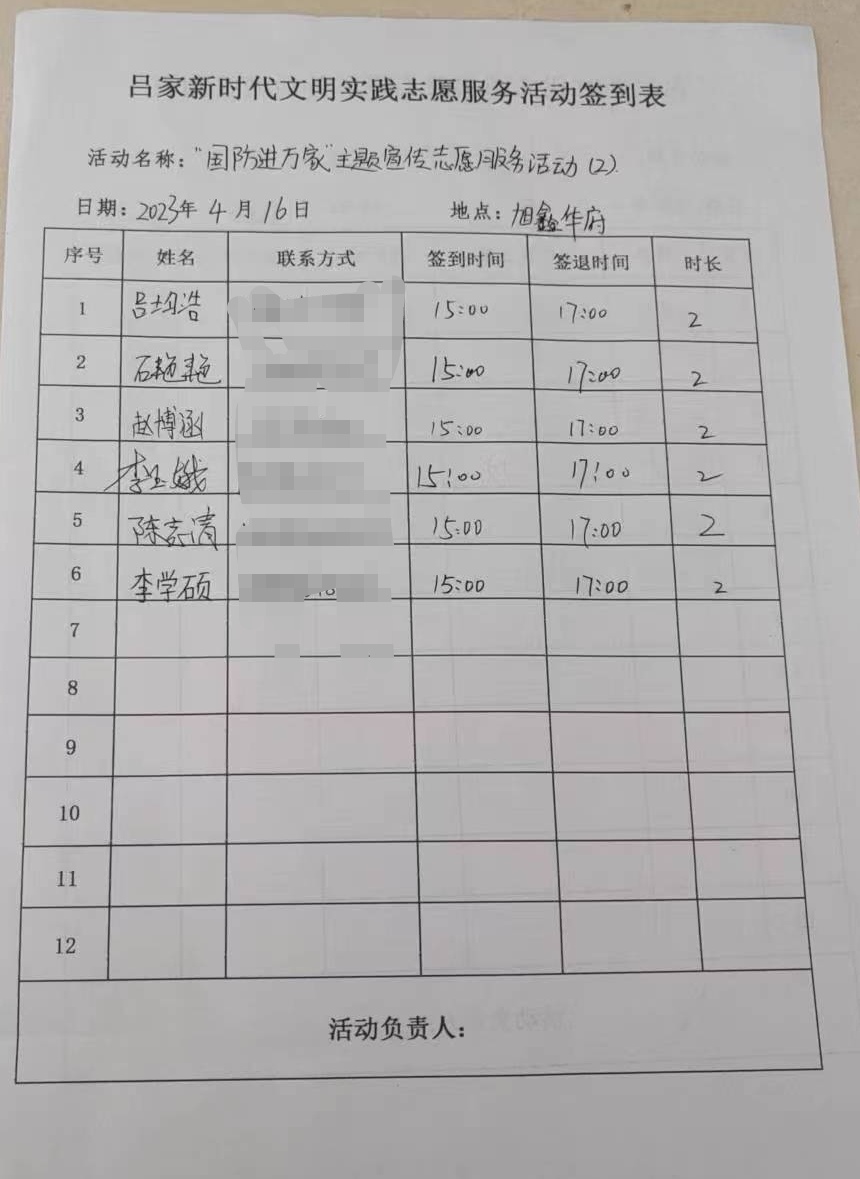 吕家新时代文明实践志愿服务活动签到表
活动名称："国防进万家"主题宣传志愿服务活动(2).
日期：2023年4月16日 地点：旭鑫华府
序号 姓名 联系方式 签到时间 签退时间 时长
1 吕均浩 15:00 17:00 2
2 石艳艳 15:00 17:00 2
3 赵博涵 15:00 17:00 2
4 李玉娥 15:00 17:00 2
5 陈志涛 15:00 17:00 2
6 李学硕 15:00 17:00 2
7
8
9
10
11
12
活动负责人：